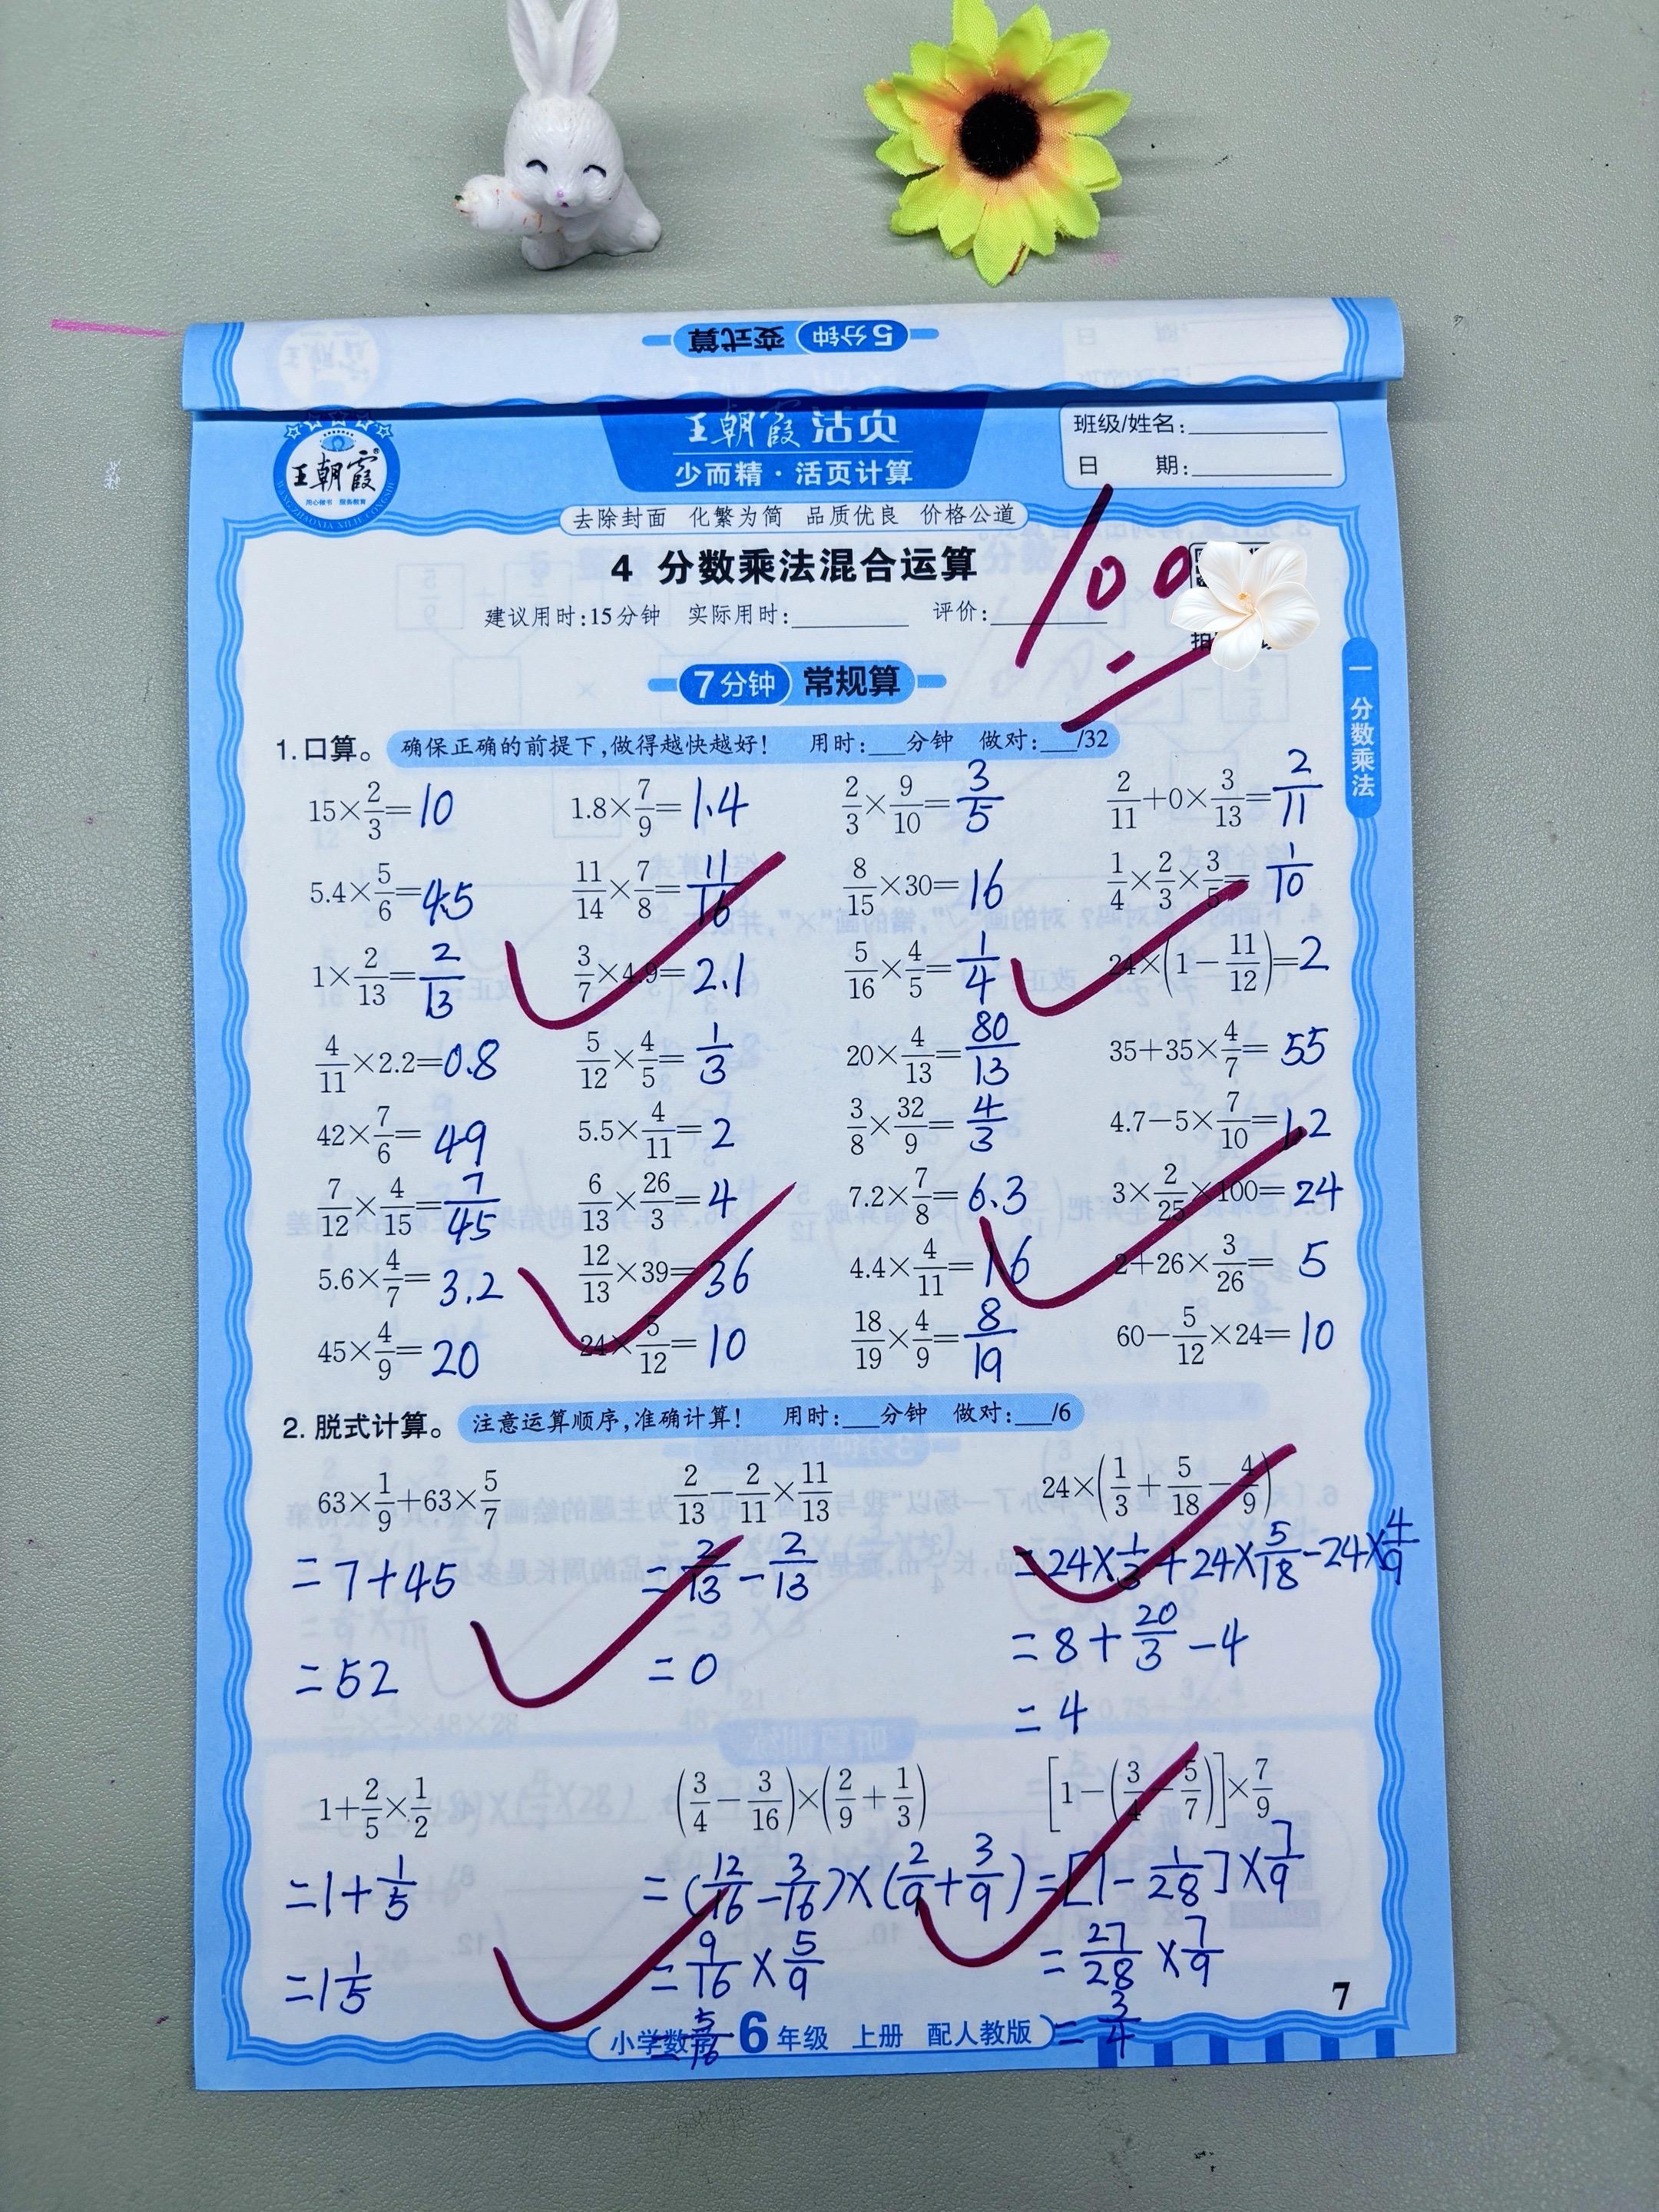 5分钟 变式算
王朝霞
用心做书 服务教育
WANG ZHAOXIA XILIE CONGSHU
王朝霞 活页
少而精·活页计算
班级/姓名:
日 期:
去除封面 化繁为简 品质优良 价格公道
4 分数乘法混合运算
100
建议用时:15分钟 实际用时: 评价:
7分钟 常规算
一 分数乘法
1.口算。 确保正确的前提下,做得越快越好! 用时:___分钟 做对:___/32
15×2/3=10 1.8×7/9=1.4 2/3×9/10=3/5 2/11+0×3/13=2/11
5.4×5/6=4.5 11/14×7/8=11/16 8/15×30=16 1/4×2/3×3/5=1/10
1×2/13=2/13 3/7×4.9=2.1 5/16×4/5=1/4 24×(1-11/12)=2
4/11×2.2=0.8 5/12×4/5=1/3 20×4/13=80/13 35+35×4/7=55
42×7/6=49 5.5×4/11=2 3/8×32/9=4/3 4.7-5×7/10=1.2
7/12×4/15=7/45 6/13×26/3=4 7.2×7/8=6.3 3×2/25×100=24
5.6×4/7=3.2 12/13×39=36 4.4×4/11=16 2+26×3/26=5
45×4/9=20 24×5/12=10 18/19×4/9=8/19 60-5/12×24=10
2.脱式计算。 注意运算顺序,准确计算! 用时:___分钟 做对:___/6
63×1/9+63×5/7 2/13-2/11×11/13 24×(1/3+5/18-4/9)
=7+45 =2/13-2/13 =24×1/3+24×5/18-24×4/9
=52 =0 =8+20/3-4
=4
1+2/5×1/2 (3/4-3/16)×(2/9+1/3) [1-(3/4-5/7)]×7/9
=1+1/5 =(12/16-3/16)×(2/9+3/9) =[1-1/28]×7/9
=1 1/5 =9/16×5/9 =27/28×7/9
=5/16 =3/4
7
小学数学 6年级 上册 配人教版